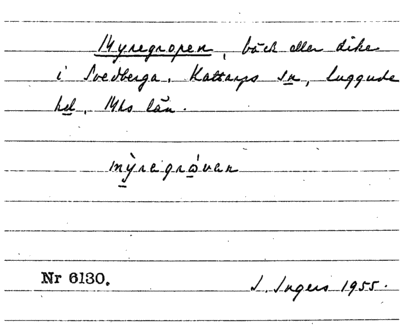 Myregropen, bäck eller dike
i Svedberga, Kattarps sn, Luggude
hd, Mhs län.
mỳregrøvan
Nr 6130.
I. Ingers 1955.